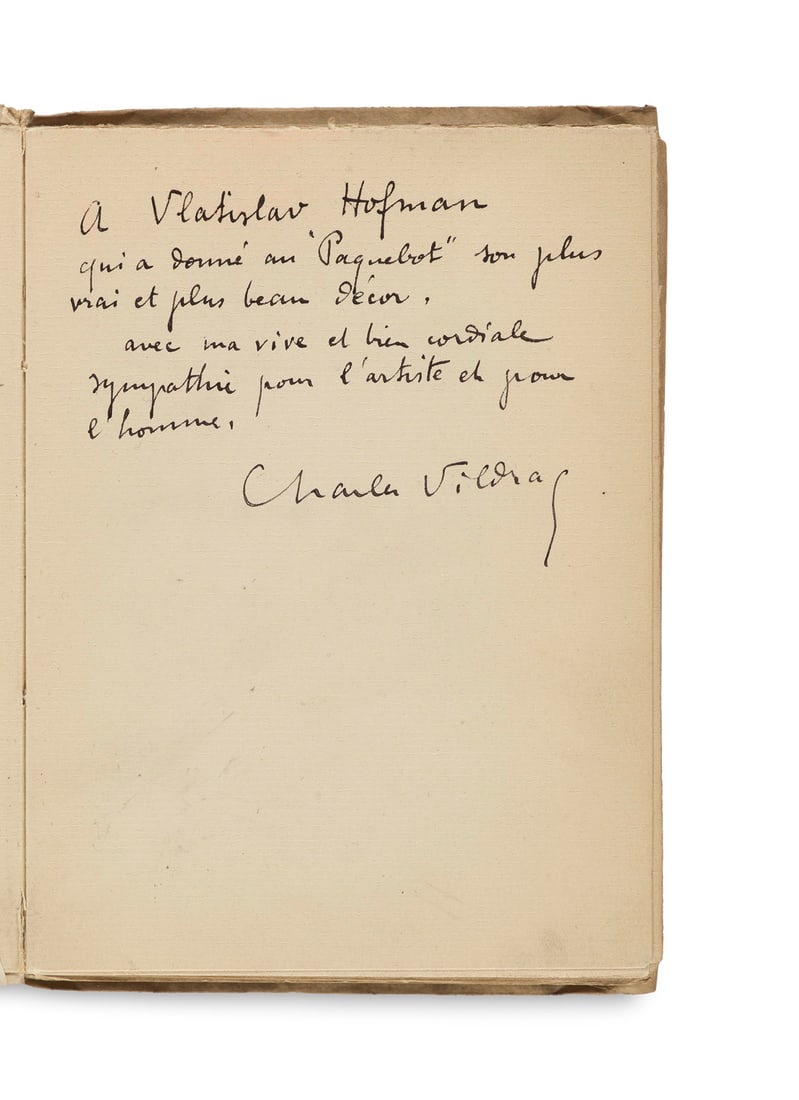 A Vlatislav Hofman
qui a donné au "Paquebot" son plus
vrai et plus beau décor,
avec ma vive et bien cordiale
sympathie pour l'artiste et pour
l'homme,
Charles Vildrac